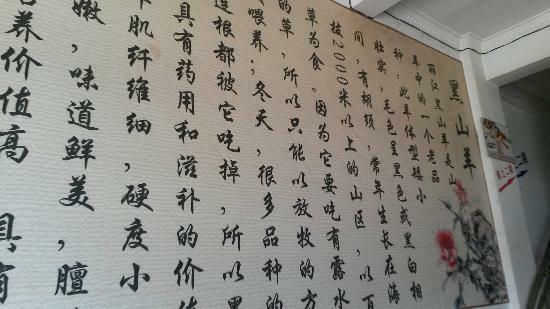 黑山羊
丽江黑山羊是山
羊中的一个老品
种，此羊体型矮小
壮实，毛色呈黑色或黑白相
间，有胡须，常年生长在海
拔2000米以上的山区，以百
草为食。因为它要吃有露水
的草，所以只能以放牧的方
喂养；冬天，很多品种的
连根都被它吃掉，所以黑
具有药用和滋补的价值
肌纤维细，硬度小
嫩，味道鲜美，膻
养价值高 具有